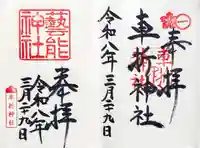 奉拝
車折神社
令和八年三月二十九日
藝能神社
奉拝
令和八年
三月二十九日
車折神社